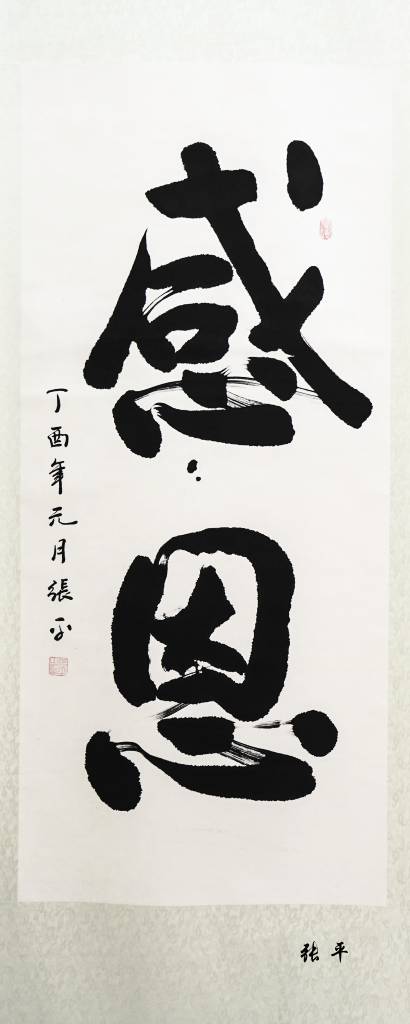 感恩
丁酉年元月張平
张平